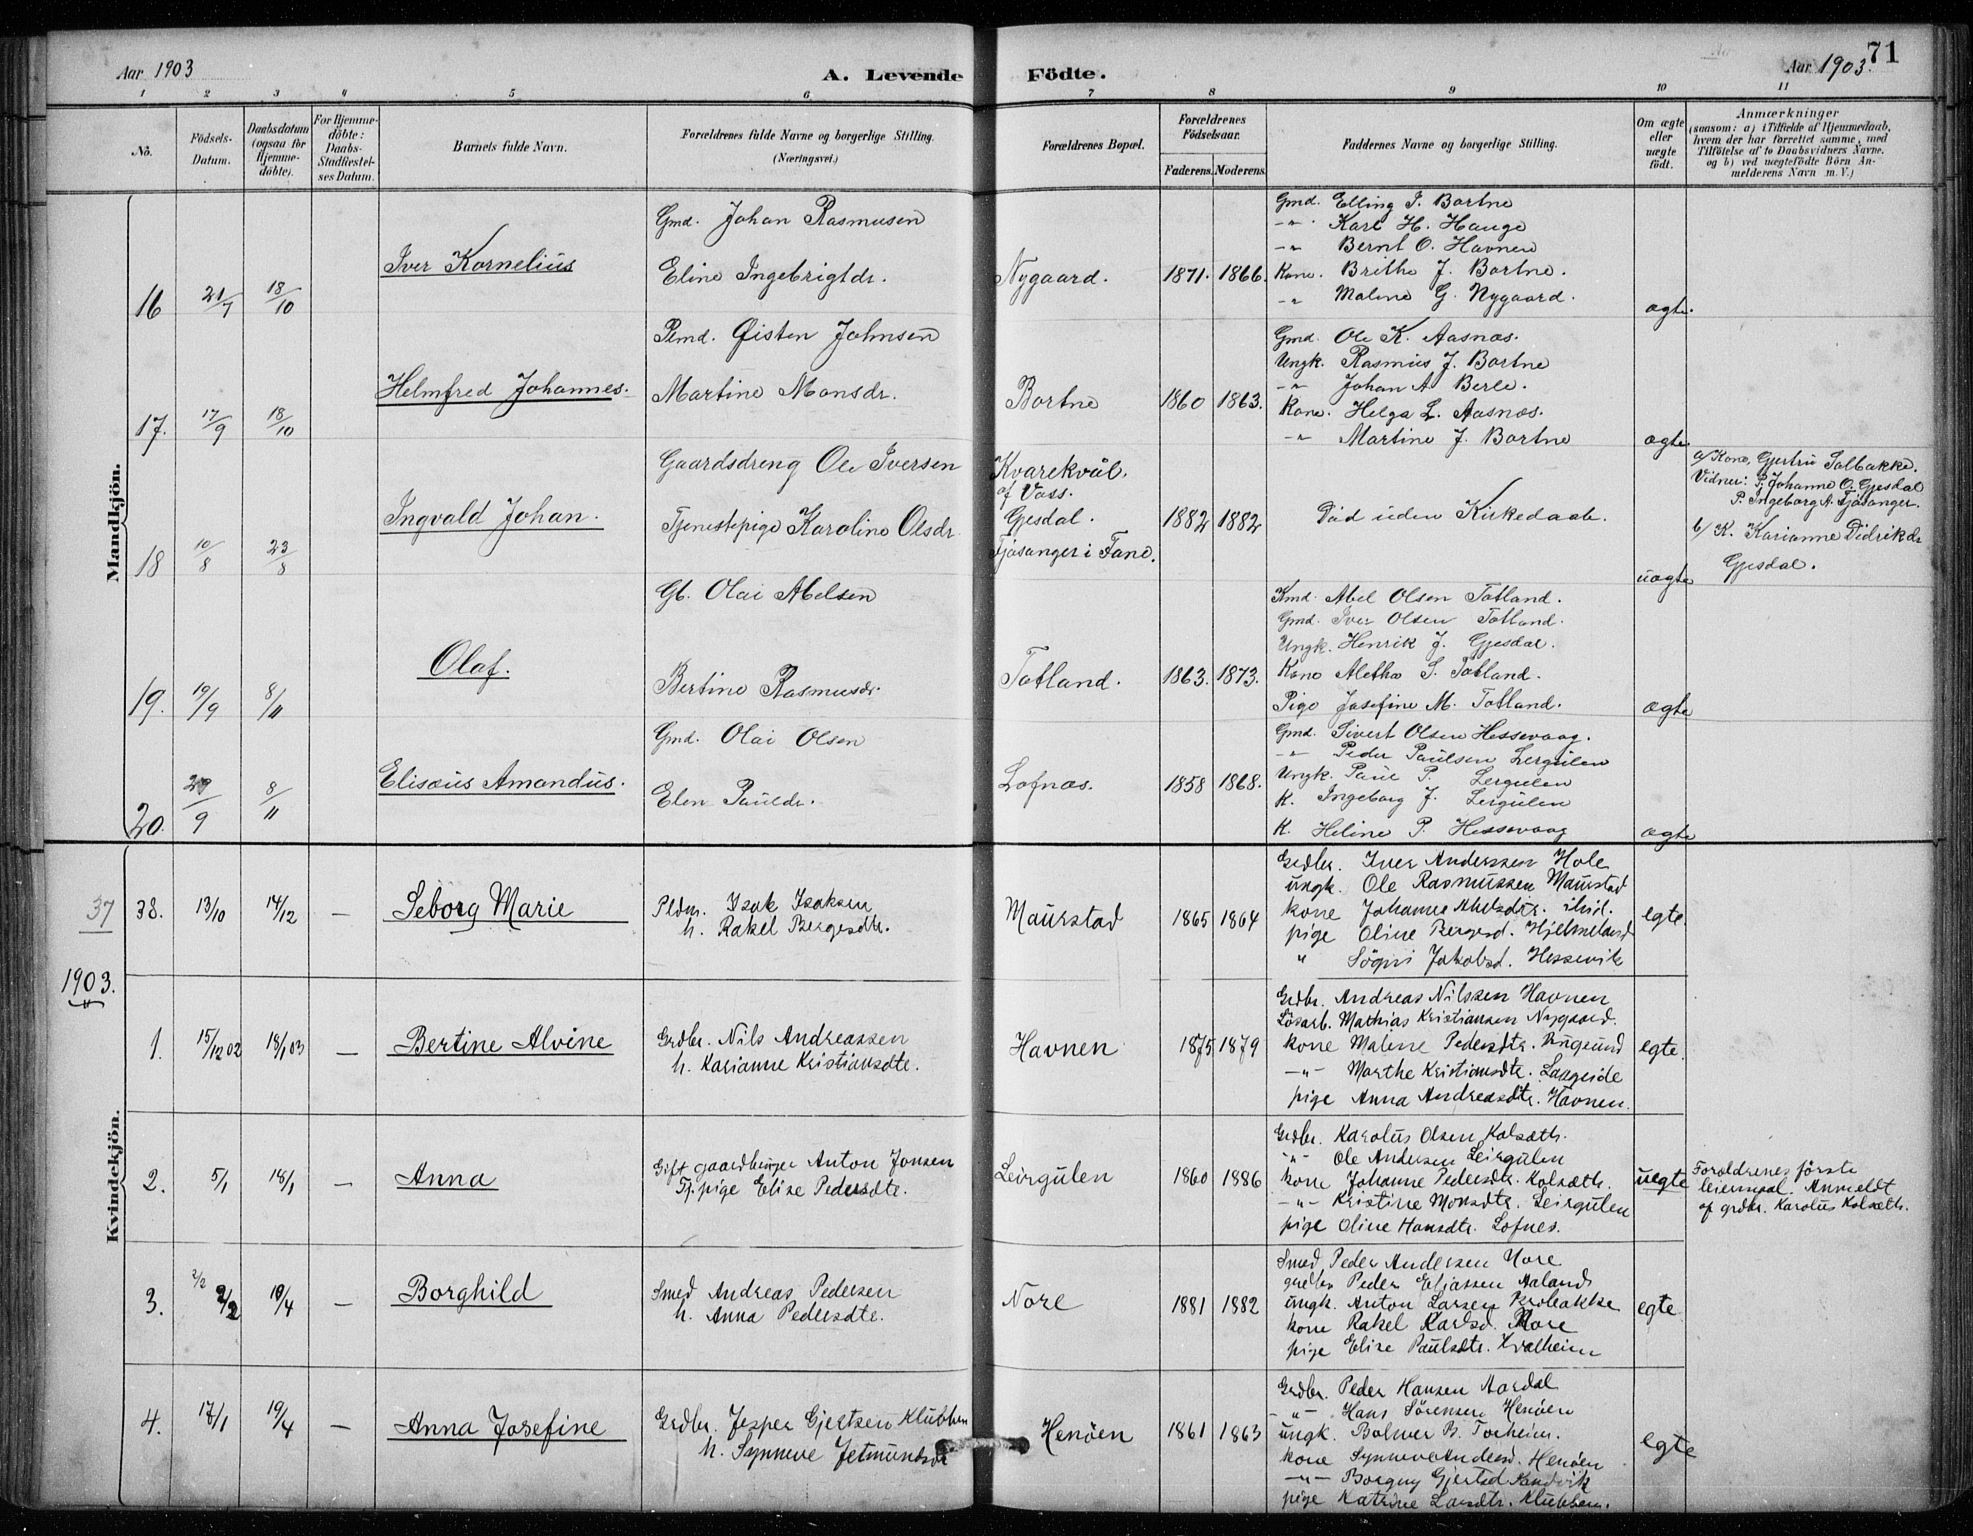 71
Aar 1903
A. Levende Födte.
Aar 1903.
1 2 3 4 5 6 7 8 9 10 11
No.
Födsels-Datum.
Daabsdatum (ogsaa for Hjemme-döbte).
For Hjemme-döbte: Daabs-Stadfæstel-ses Datum.
Barnets fulde Navn.
Forældrenes fulde Navne og borgerlige Stilling. (Næringsvei.)
Forældrenes Bopæl.
Forældrenes Födselsaar.
Faderens. Moderens.
Faddernes Navne og borgerlige Stilling.
Om ægte eller uægte födt.
Anmærkninger
(saasom: a) i Tilfælde af Hjemmedaab, hvem der har forrettet samme, med Tilföielse af to Daabsvidners Navne. og b) ved uægtefödte Börn An-melderens Navn m. V.)
Mandkjön.
16 21/7 18/10
Iver Kornelius
Gmd. Johan Rasmusen
Eline Ingebrigtdr.
Nygaard.
1871. 1866.
Gmd. Elling I. Bortne
-"- Karl H. Hauge
-"- Bernt O. Havnen
Kone. Brithe J. Bortne.
-"- Maline G. Nygaard.
ægte.
17. 17/9 18/10
Helmfred Johannes.
Pmd. Øisten Johnsen
Martine Monsdr.
Bortne
1860 1863.
Gmd. Ole K. Aasnæs.
Ungk. Rasmus J. Bortne
-"- Johan A Berle.
Kone. Helga L. Aasnæs.
-"- Martine J. Bortne
ægte.
18 10/8 23/8
Ingvald Johan.
Gaardsdreng Ole Iversen
Tjenestepige Karoline Olsdr
Kvarekvål.
af Vass.
Gjesdal.
Fjøsanger i Fane.
1882 1882
Død uden Kirkedaab.
uægte
a/ Kone, Gjertru Solbakke.
Vidner: P. Johanne O. Gjesdal
P. Ingeborg A. Fjøsanger.
b/ K. Karianne Didrikdr
Gjesdal.
19. 19/9 8/11
Olaf.
Gb. Olai Abelsen
Bertine Rasmusdr.
Totland.
1863. 1873.
Kmd. Abel Olsen Totland.
Gmd. Iver Olsen Totland.
Ungk. Henrik J. Gjesdal.
Kone Alethe S. Totland.
Pige Josefine M. Totland.
ægte
20. 9 8/11
Elisæus Amandus.
Gmd. Olai Olsen
Elen Pauldr.
Lofnæs.
1858 1868.
Gmd. Sivert Olsen Hessevaag.
-"- Peder Paulsen Lergulen
Ungk. Paul P. Lergulen
K. Ingeborg J. Lergulen
K. Heline P. Hessevaag
ægte
Kvindekjön.
37 38. 13/10 14/12 —
Seborg Marie
Pldm. Isak Isaksen
h. Rakel Bergesdtr.
Maurstad
1865 1864
Grdbr. Iver Anderssen Hole
ungk. Ole Rasmussen Maurstad
kone Johanne Abelsdtr. ibid.
pige Oline Bergesd. Hjelmeland
" Sögni Jakobsd. Hessevik
egte.
1903.
1. 15/12 02 18/1 03 —
Bertine Alvine
Grdbr. Nils Andreassen
h. Karianne Kristiansdtr.
Havnen
1875 1879
Grdbr. Andreas Nilssen Havnen
Lösarb. Mathias Kristiansen Nygaard.
kone Malene Pedersdtr. Rugsund
-"- Marthe Kristiansdtr. Langeide
pige Anna Andreasdtr. Havnen.
egte.
2. 5/1 18/1 —
Anna
Gift gaardbruger Anton Jonsen
Tj.pige Elise Pedersdtr.
Leirgulen
1860 1886
Grdbr. Karolus Olsen Kolsæth.
-"- Ole Andersen Leirgulen
kone Johanne Pedersdtr. Kolsæth.
-"- Kristine Monsdtr. Leirgulen
pige Oline Hansdtr. Lofnes.
uegte
Foræld­renes förste
leiermaal. Anmeldt
af grdbr. Karolus Kolsæth.
3. 2/2 2/2 19/4 —
Borghild
Smed Andreas Pedersen
h. Anna Pedersdtr.
Nore
1881 1882
Smed Peder Andersen Nore
grdbr Peder Eliassen Aaland
ungk. Anton Larsen Krobakke
kone Rakel Karlsd. Nore
pige Elise Paulsdtr. Kvalheim
egte
4. 17/1 19/4 —
Anna Josefine
Grdbr. Jesper Gjertsen Klubben
h. Synneve Jetmundsdr
Henöen
1861 1863
Grdbr. Peder Hansen Aardal
-"- Hans Sörensen Henöen
ungk. Bolmer B. Torheim.
kone Synneve Andersd. Henöen
-"- Borgny Gjertsd.
pige Katrine Larsdtr. Klubben.
egte